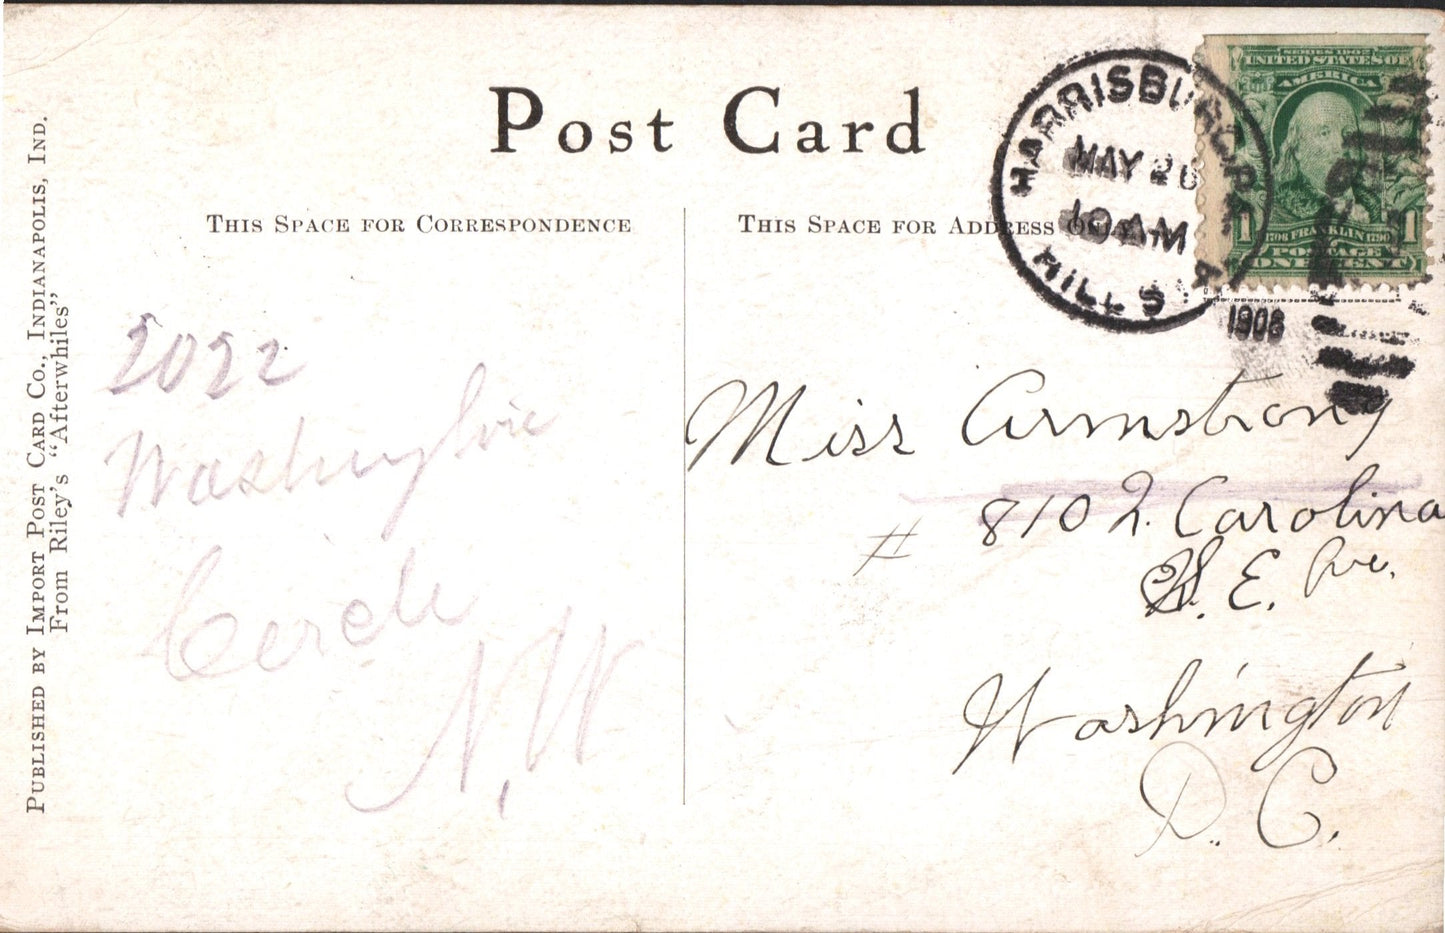 Post Card
THIS SPACE FOR CORRESPONDENCE
THIS SPACE FOR ADDRESS
PUBLISHED BY IMPORT POST CARD CO., INDIANAPOLIS, IND.
From Riley's "Afterwhiles"
HARRISBURG, PA.
MAY 26
10 AM
HILL STA.
1908
SERIES 1902
UNITED STATES OF
AMERICA
1 1
1706 FRANKLIN 1790
POSTAGE
ONE CENT
2022
Washington
Circle
N.W
Miss Armstrong
# 810 2. Carolina
S. E. Ave.
Washington
D. C.